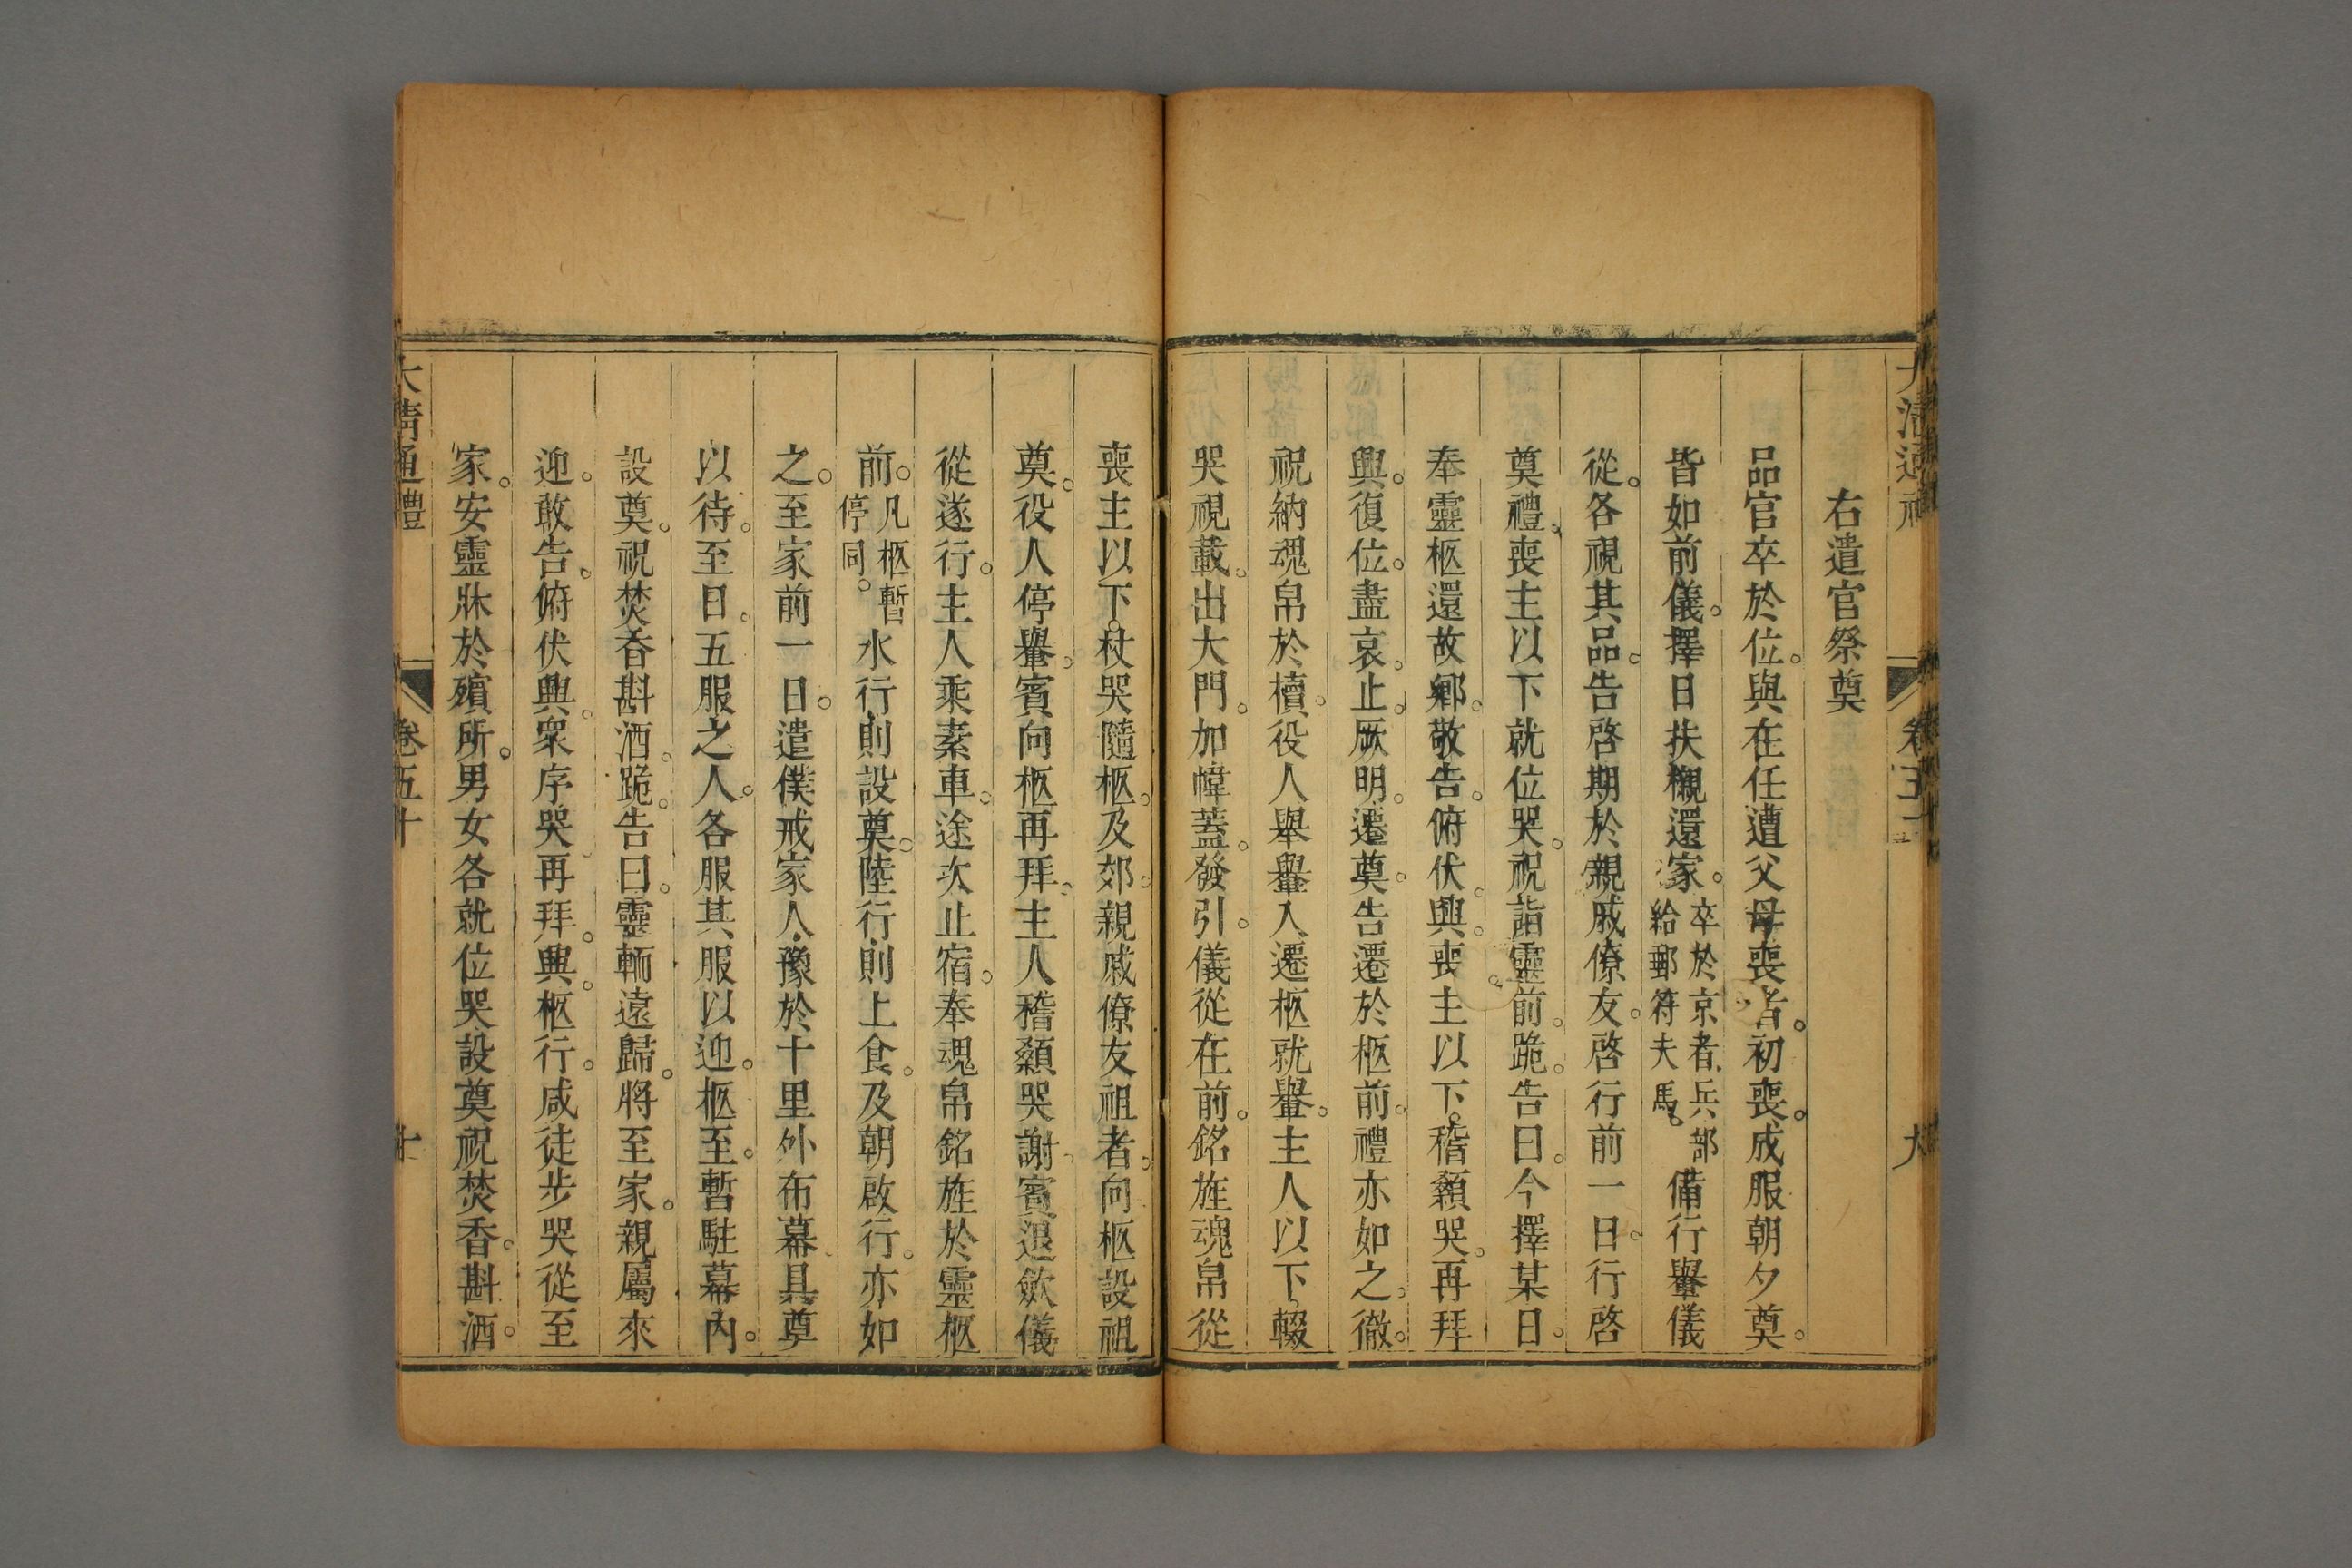 大清通禮 卷五十
右遣官祭奠
品官卒於位。與在任遭父母喪者。初喪。成服朝夕奠。
皆如前儀。擇日扶櫬還家。卒於京者。兵部給郵符夫馬。備行轝儀
從。各視其品。告啓期於親戚僚友。啓行前一日。行啓
奠禮。喪主以下就位哭。祝詣靈前。跪。告曰。今擇某日。
奉靈柩還故鄉。敬告。俯伏。興。喪主以下。稽顙哭。再拜
興。復位。盡哀。止。厥明。遷奠。告遷於柩前。禮亦如之。徹。
祝納魂帛於櫝。役人舉轝入。遷柩就轝。主人以下。輟
哭視載。出大門。加幃蓋。發引。儀從在前。銘旌魂帛從
喪主以下。杖哭隨柩。及郊。親戚僚友祖者。向柩設祖
奠。役人停轝。賓向柩再拜。主人稽顙哭謝。賓退。斂儀
從遂行。主人乘素車。途次止宿。奉魂帛銘旌於靈柩
前。凡柩暫停同。水行則設奠。陸行則上食。及朝啟行。亦如
之。至家前一日。遣僕戒家人。豫於十里外布幕具奠
以待。至日。五服之人。各服其服以迎。柩至。暫駐幕內。
設奠。祝焚香斟酒。跪。告曰。靈輀遠歸。將至家。親屬來
迎。敢告。俯伏興。衆序哭再拜。興。柩行。咸徒步哭從至
家。安靈牀於殯所。男女各就位哭。設奠。祝焚香。斟酒。
大清通禮 卷五十 十